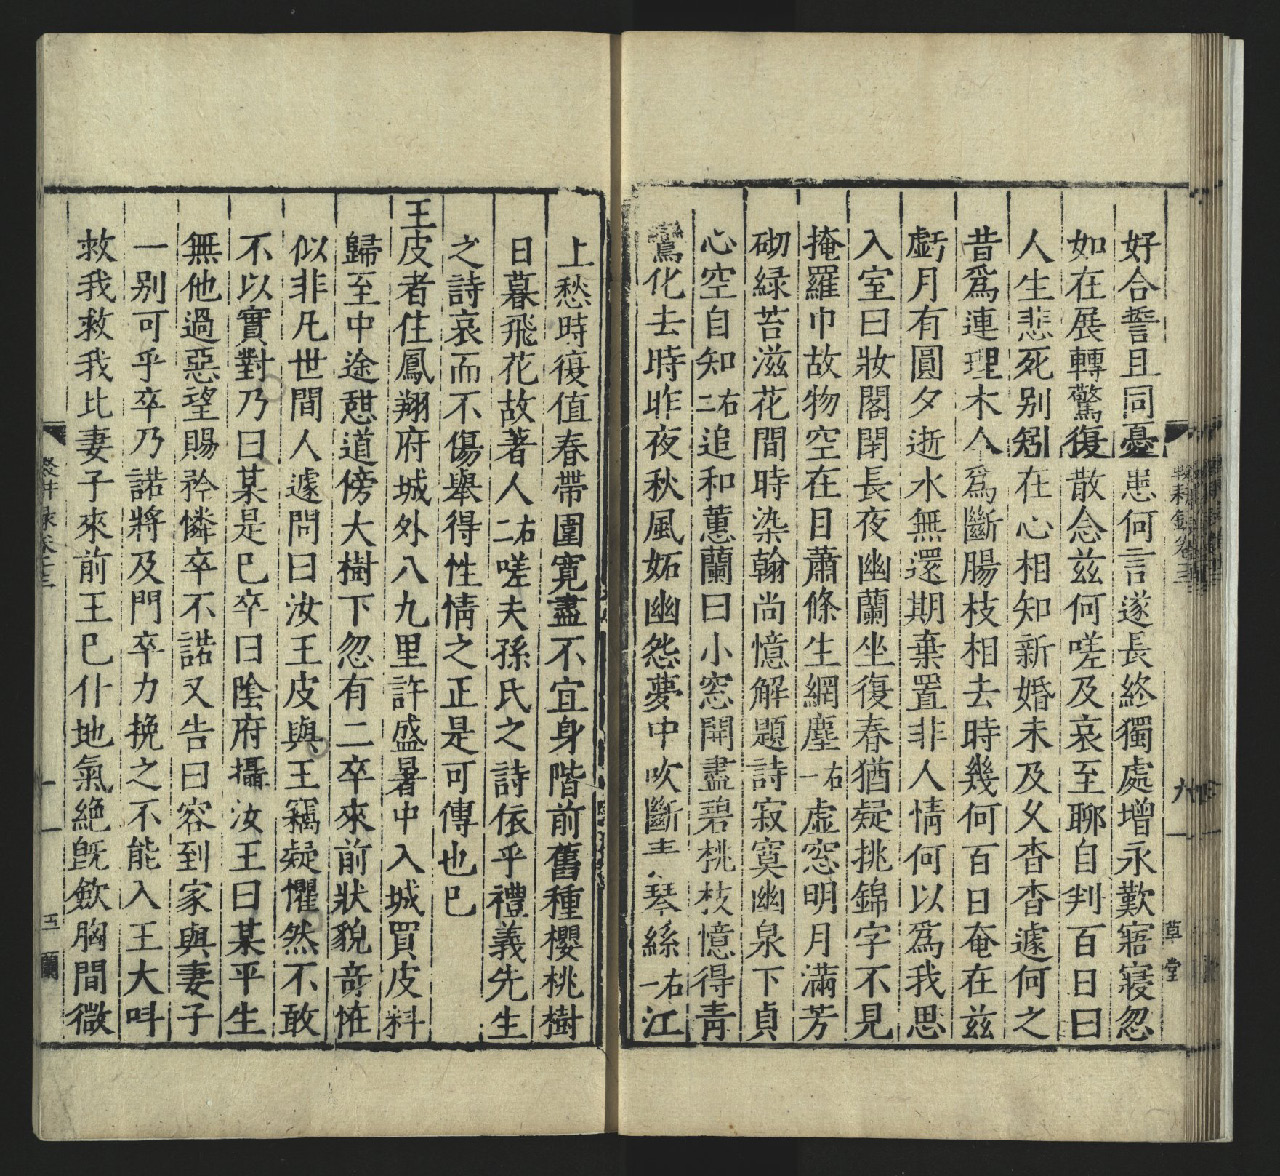 好合誓且同憂患何言遂長終獨處增永歎寤寢忽
如在展轉驚復散念茲何嗟及哀至聊自判百日曰
人生悲死别矧在心相知新婚未及久杳杳遽何之
昔爲連理木今爲斷腸枝相去時幾何百日奄在兹
虧月有圓夕逝水無還期棄置非人情何以爲我思
入室曰妝閣閉長夜幽蘭坐復春猶疑挑錦字不見
掩羅巾故物空在目蕭條生網塵右一虚窓明月滿芳
砌緑苔滋花間時染翰尚憶解題詩寂寞幽泉下貞
心空自知右二追和蕙蘭曰小窓開盡碧桃枝憶得青
鸞化去時昨夜秋風妬幽怨夢中吹斷琴絲右一江
上愁時復值春帶圍寛盡不宜身階前舊種櫻桃樹
日暮飛花故著人右二嗟夫孫氏之詩依乎禮義先生
之詩哀而不傷舉得性情之正是可傳也巳
王皮者住鳳翔府城外八九里許盛暑中入城買皮料
歸至中途憇道傍大樹下忽有二卒來前狀貌竒恠
似非凡世間人遽問曰汝王皮與王竊疑懼然不敢
不以實對乃曰某是巳卒曰隂府攝汝王曰某平生
無他過惡望賜矜憐卒不諾又告曰容到家與妻子
一别可乎卒乃諾將及門卒力挽之不能入王大呌
救我救我比妻子來前王巳仆地氣絶旣歛胸間微
草堂